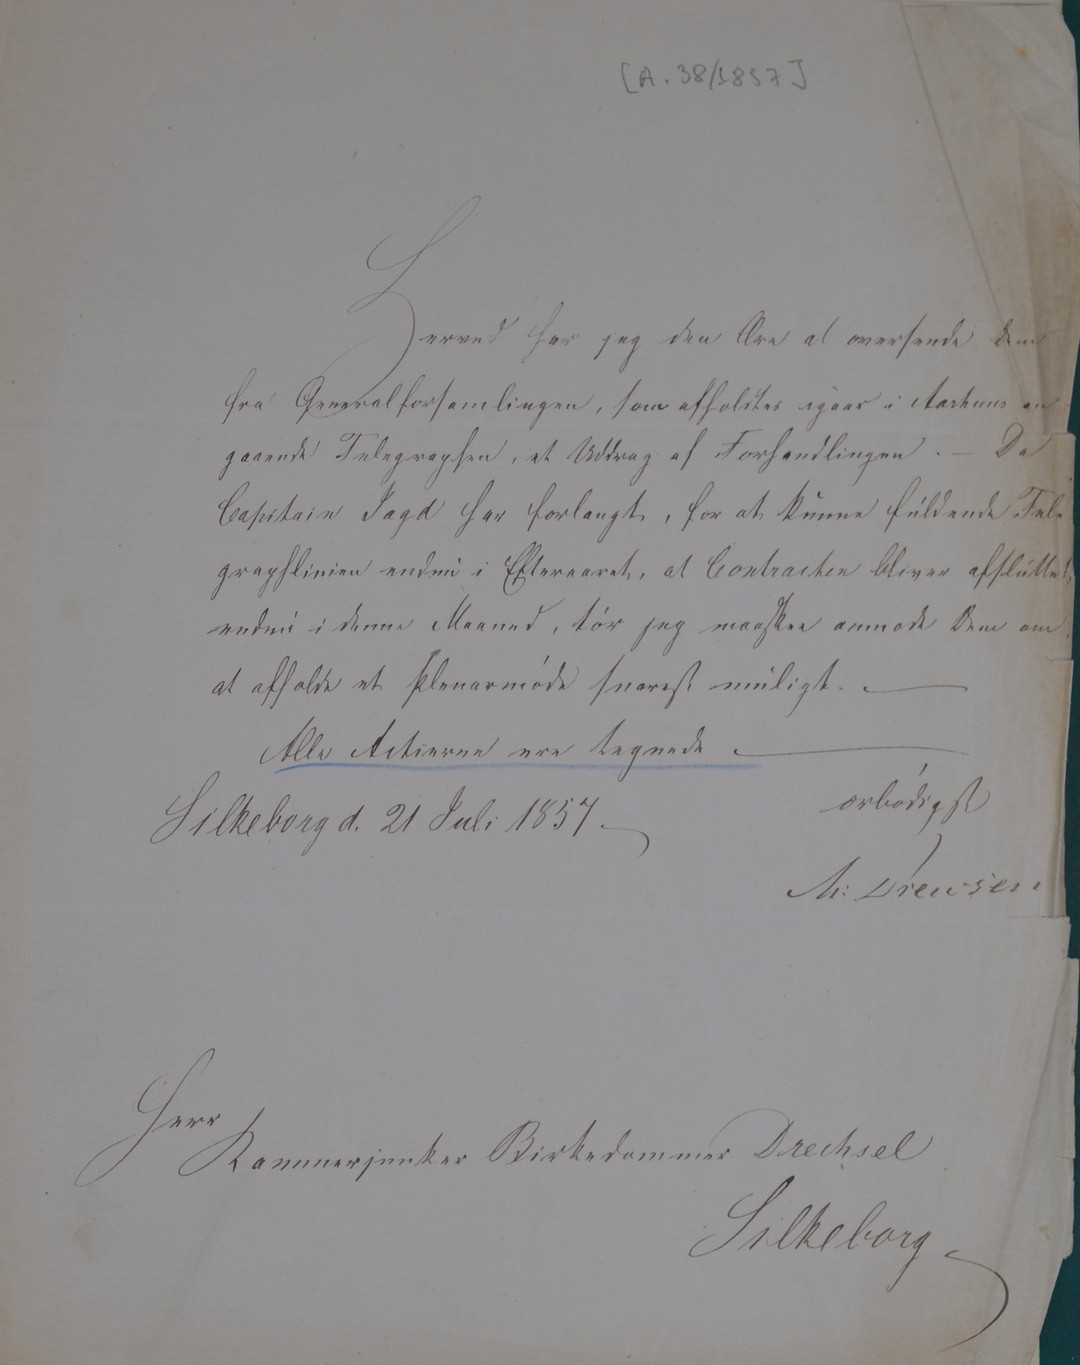 [A. 38/1857]
Herved har jeg den Ære at oversende Dem
fra Generalforsamlingen, som afholdtes igaar i Aarhuus an
gaaende Telegraphen, et Uddrag af Forhandlingen. — Da
Capitain Jagd har forlangt, for at kunne fuldende Tele
graphlinien endnu i Efteraaret, at Contracten bliver afsluttet,
endnu i denne Maaned, tør jeg maaskee anmode Dem om,
at afholde et Plenarmøde snarest muligt. —
Alle Actierne ere tegnede. —
Silkeborg d. 21 Juli 1857.
ærbødigst
M: Drewsen
Herr
Kammerjunker Birkedommer Drechsel
Silkeborg